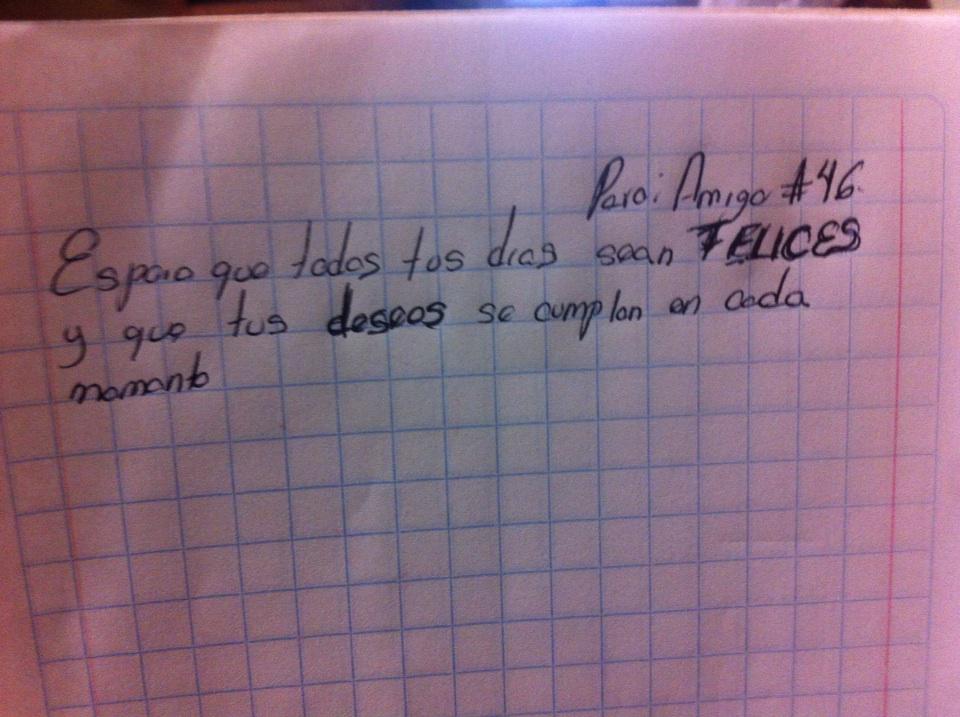 Para: Amigo #46.
Espero que todos tus dias sean FELICES
y que tus deseos se cumplan en cada
momento